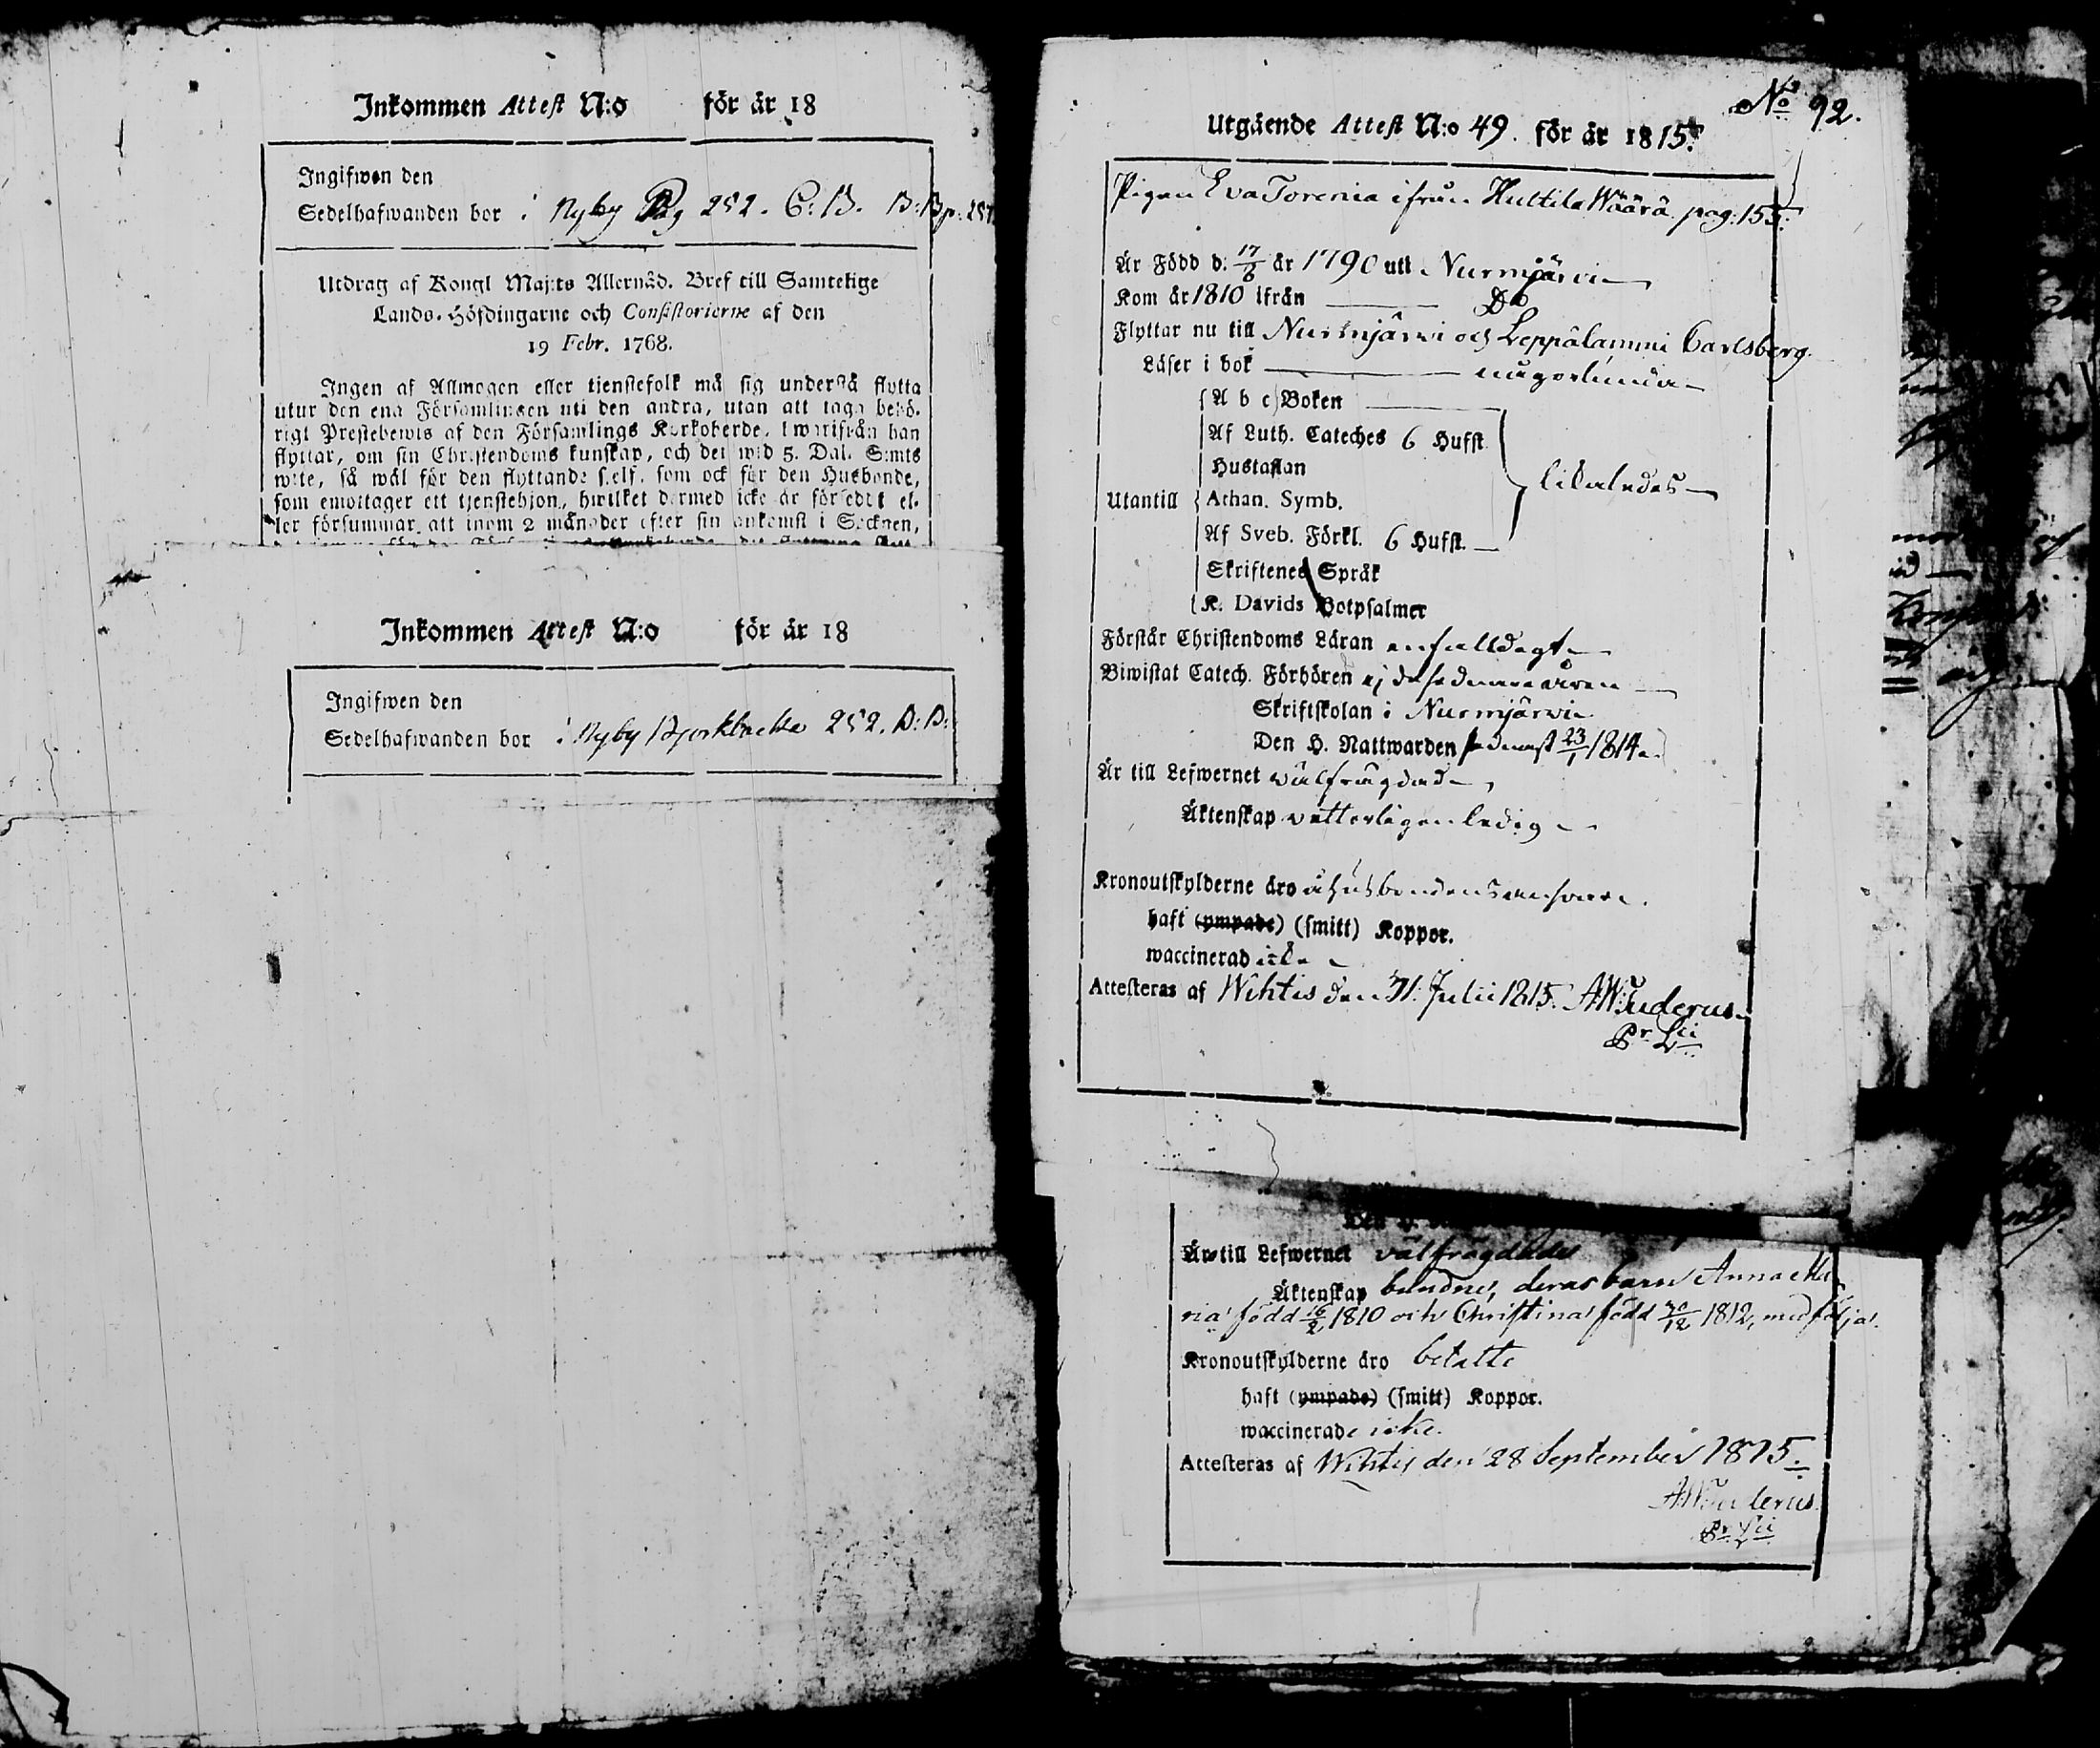 Inkommen Attest N:o för år 18
Ingifwen den
Sedelhafwanden bor i Nyby Pag 252. C:B. B:B p: 251
Utdrag af Kongl Maj:ts Allernåd. Bref till Samtelige
Lands-Höfdingarne och Consistorierne af den
19 Febr. 1768.
Ingen af Allmogen eller tienstefolk må sig understå flytta
utur den ena Församlingen uti den andra, utan att taga behö-
rigt Prestebewis af den Församlings Kyrkoherde, hwarifrån han
flyttar, om sin Christendoms kunskap, och det wid 5. Dal. S:mts
wite, så wäl för den flyttande sielf, som ock för den Husbonde,
som emottager ett tjenstehjon, hwilket dermed icke är försedt el-
ler försummar att inom 2 månader efter sin ankomst i Socknen,
Inkommen Attest N:o för år 18
Ingifwen den
Sedelhafwanden bor i Nyby Bjorkbacka 252. B:B:
No 92.
Utgående Attest N:o 49. för år 1815.
Pigan Eva Torenia ifrån Huttila Wäärä pag: 155.
Är Född d: 17/6 år 1790 uti Nurmijärvi
Kom år 1810 ifrån Do
Flyttar nu till Nurmjärvi och Leppälammi Carlsberg.
Läser i bok någorlunda
A b c Boken
Af Luth. Cateches 6 Hufst.
Hustaflan
likaledes
Utantill Athan. Symb.
Af Sveb. Förkl. 6 Hufst.
Skriftenes Språk
K. Davids Botpsalmer
Förstår Christendoms Läran enfalldigt
Biwistat Catech. Förhören ej de sednare åren
Skriftskolan i Nurmjärvi
Den H. Nattwarden sednast 23/1 1814
Är till Lefwernet välfrägdad
Äktenskap vetterligen ledig
Kronoutskylderne äro å husbondens ansvar.
haft (ympade) (smitt) Koppor.
waccinerad icke
Attesteras af Wihtis den 31. Julii 1815. A:W:Tuderus
Pr. Lci
Är till Lefwernet välfrägdade
Äktenskap bundne, deras barn Anna Ma-
ria född 16/2 1810 och Christina född 30/12 1812, medfölja.
Kronoutskylderne äro betalte
haft (ympade) (smitt) Koppor.
waccinerade icke.
Attesteras af Wihtis den 28 September 1815.
A:W:Tuderus.
Pr. Lci